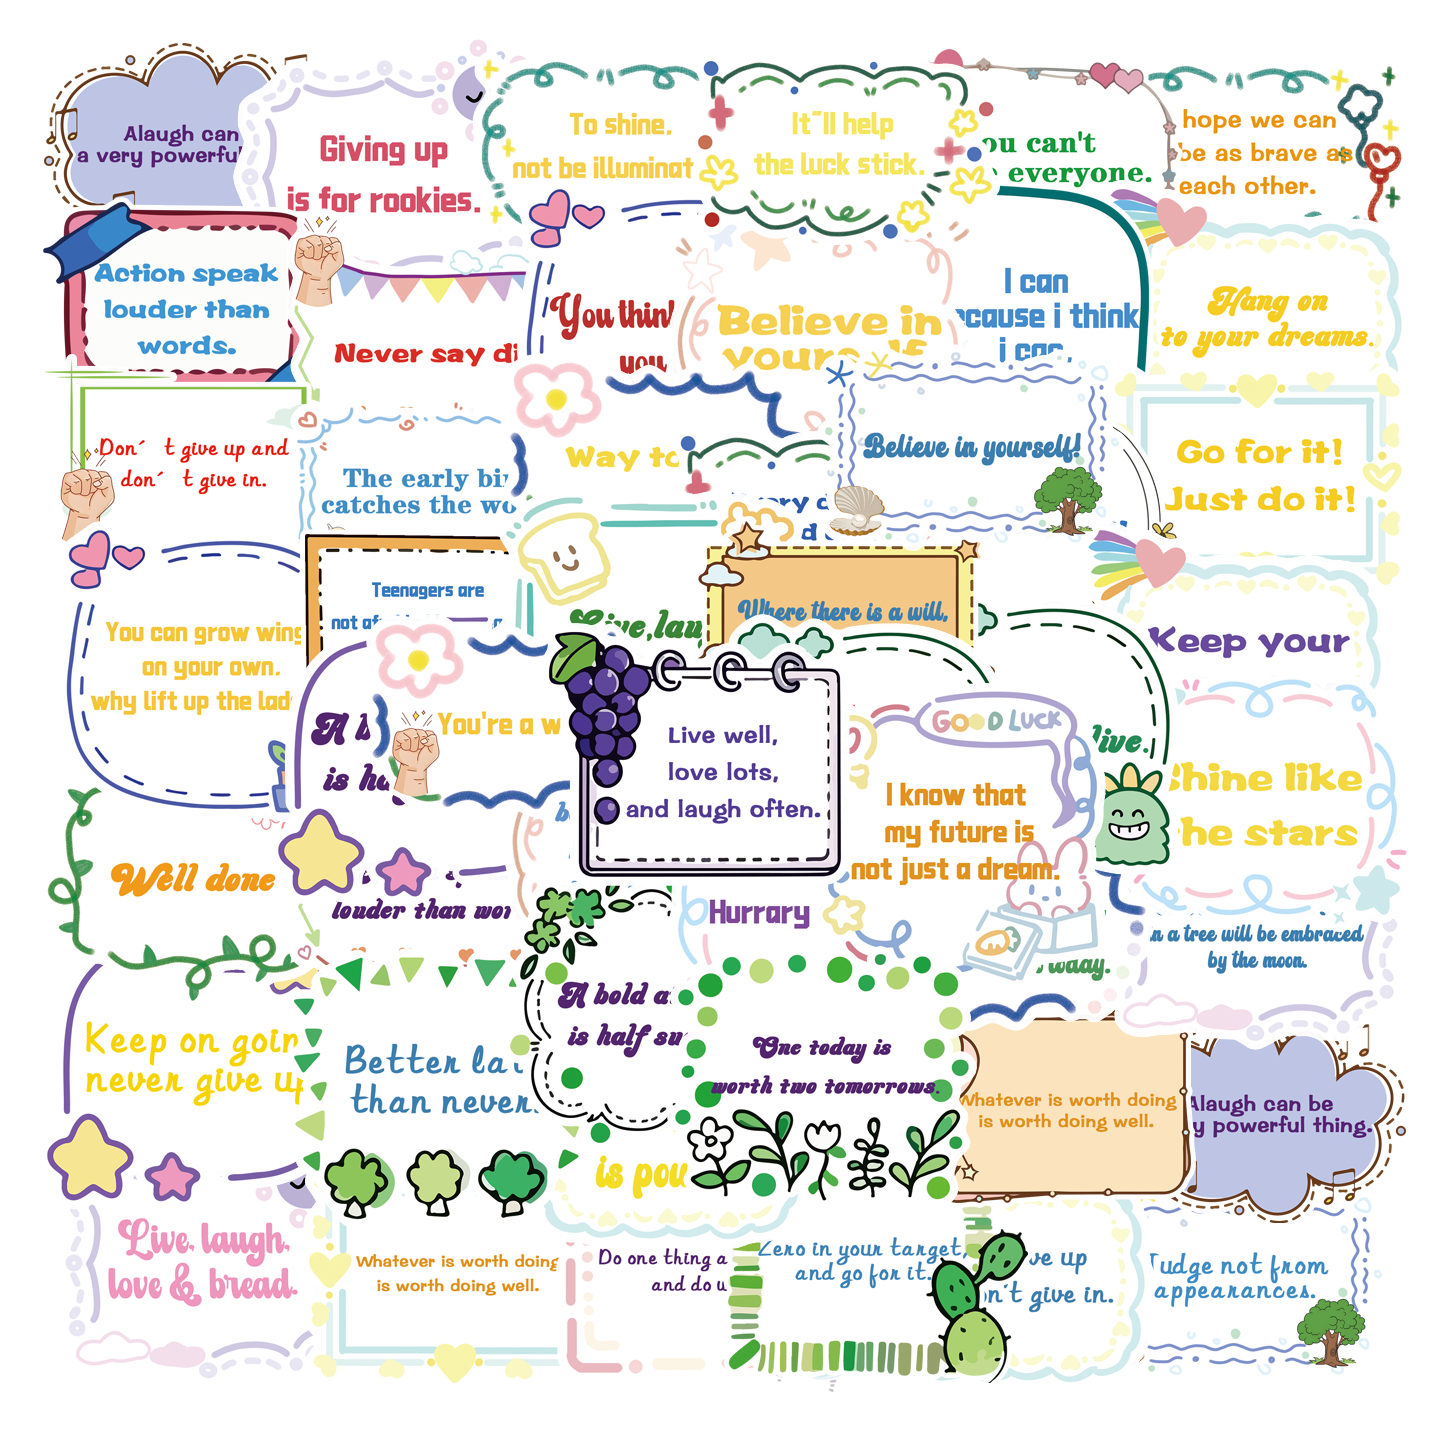 Alaugh can
a very powerful
Giving up
is for rookies.
To shine.
not be illuminat
It"ll help
the luck stick.
can't
everyone.
hope we can
be as brave as
each other.
Action speak
louder than
words.
Never say di
You thin
you
Believe in
yourself
I can
cause i think
i can.
Hang on
to your dreams.
Don´ t give up and
don´ t give in.
The early bir
catches the wo
Way to
Believe in yourself!
Go for it!
Just do it!
Teenagers are
You can grow wing
on your own.
why lift up the lad
Live,lau
Where there is a will,
Keep your
A b
is ha
You're a w
Live well,
love lots,
and laugh often.
GOOD LUCK
I know that
my future is
not just a dream.
live.
Shine like
the stars
Well done
louder than wor
Hurrary
n a tree will be embraced
by the moon.
Keep on goin
never give up
Better lat
than never.
A bold a
is half su
One today is
worth two tomorrows.
Whatever is worth doing
is worth doing well.
Alaugh can be
y powerful thing.
is pou
Live, laugh,
love & bread.
Whatever is worth doing
is worth doing well.
Do one thing a
and do
Zero in your target,
and go for it.
ve up
n't give in.
Judge not from
appearances.